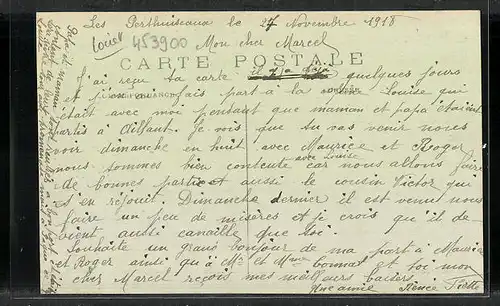 Les Perthuiseaux le 27 Novembre 1918
Loiret 453900
Mon cher Marcel
CARTE POSTALE
J'ai reçu ta carte il y a déjà quelques jours
et j'en ai fais part à la Louise qui
était avec moi pendant que maman et papa étaient
partis à Oillant. Je vois que tu vas venir nous
voir dimanche en huit avec Maurice et Roger
nous sommes bien contente car nous allons faire
avec Louise
de bonnes partie et aussi le cousin Victor qui
s'en rejouit. Dimanche dernier il est venu nous
faire un peu de misères et je crois qu'il de-
vient aussi canaille que toi.
Souhaite un grand bonjour de ma part à Maurice
et Roger ainsi qu'à Mr et Mme et toi mon
cher Marcel reçois mes meilleurs baisers
Une amie Renée
Papa et maman